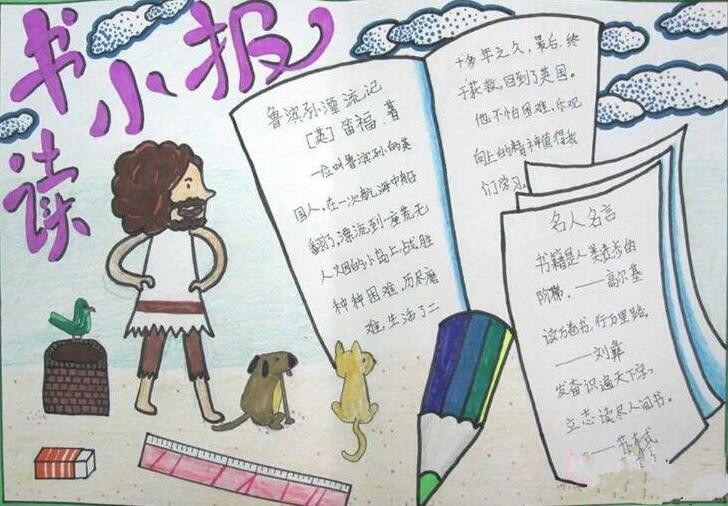 读书小报
鲁滨孙漂流记
[英]笛福 著
一位叫鲁滨孙的英
国人,在一次航海中船
翻了,漂流到一座荒无
人烟的小岛上,战胜
种种困难,历尽磨
难,生活了二
十多年之久,最后,终
于获救,回到了英国。
他不怕困难、乐观
向上的精神值得我
们学习。
名人名言
书籍是人类进步的
阶梯。——高尔基
读万卷书,行万里路。
——刘彝
发奋识遍天下字,
立志读尽人间书。
——苏轼